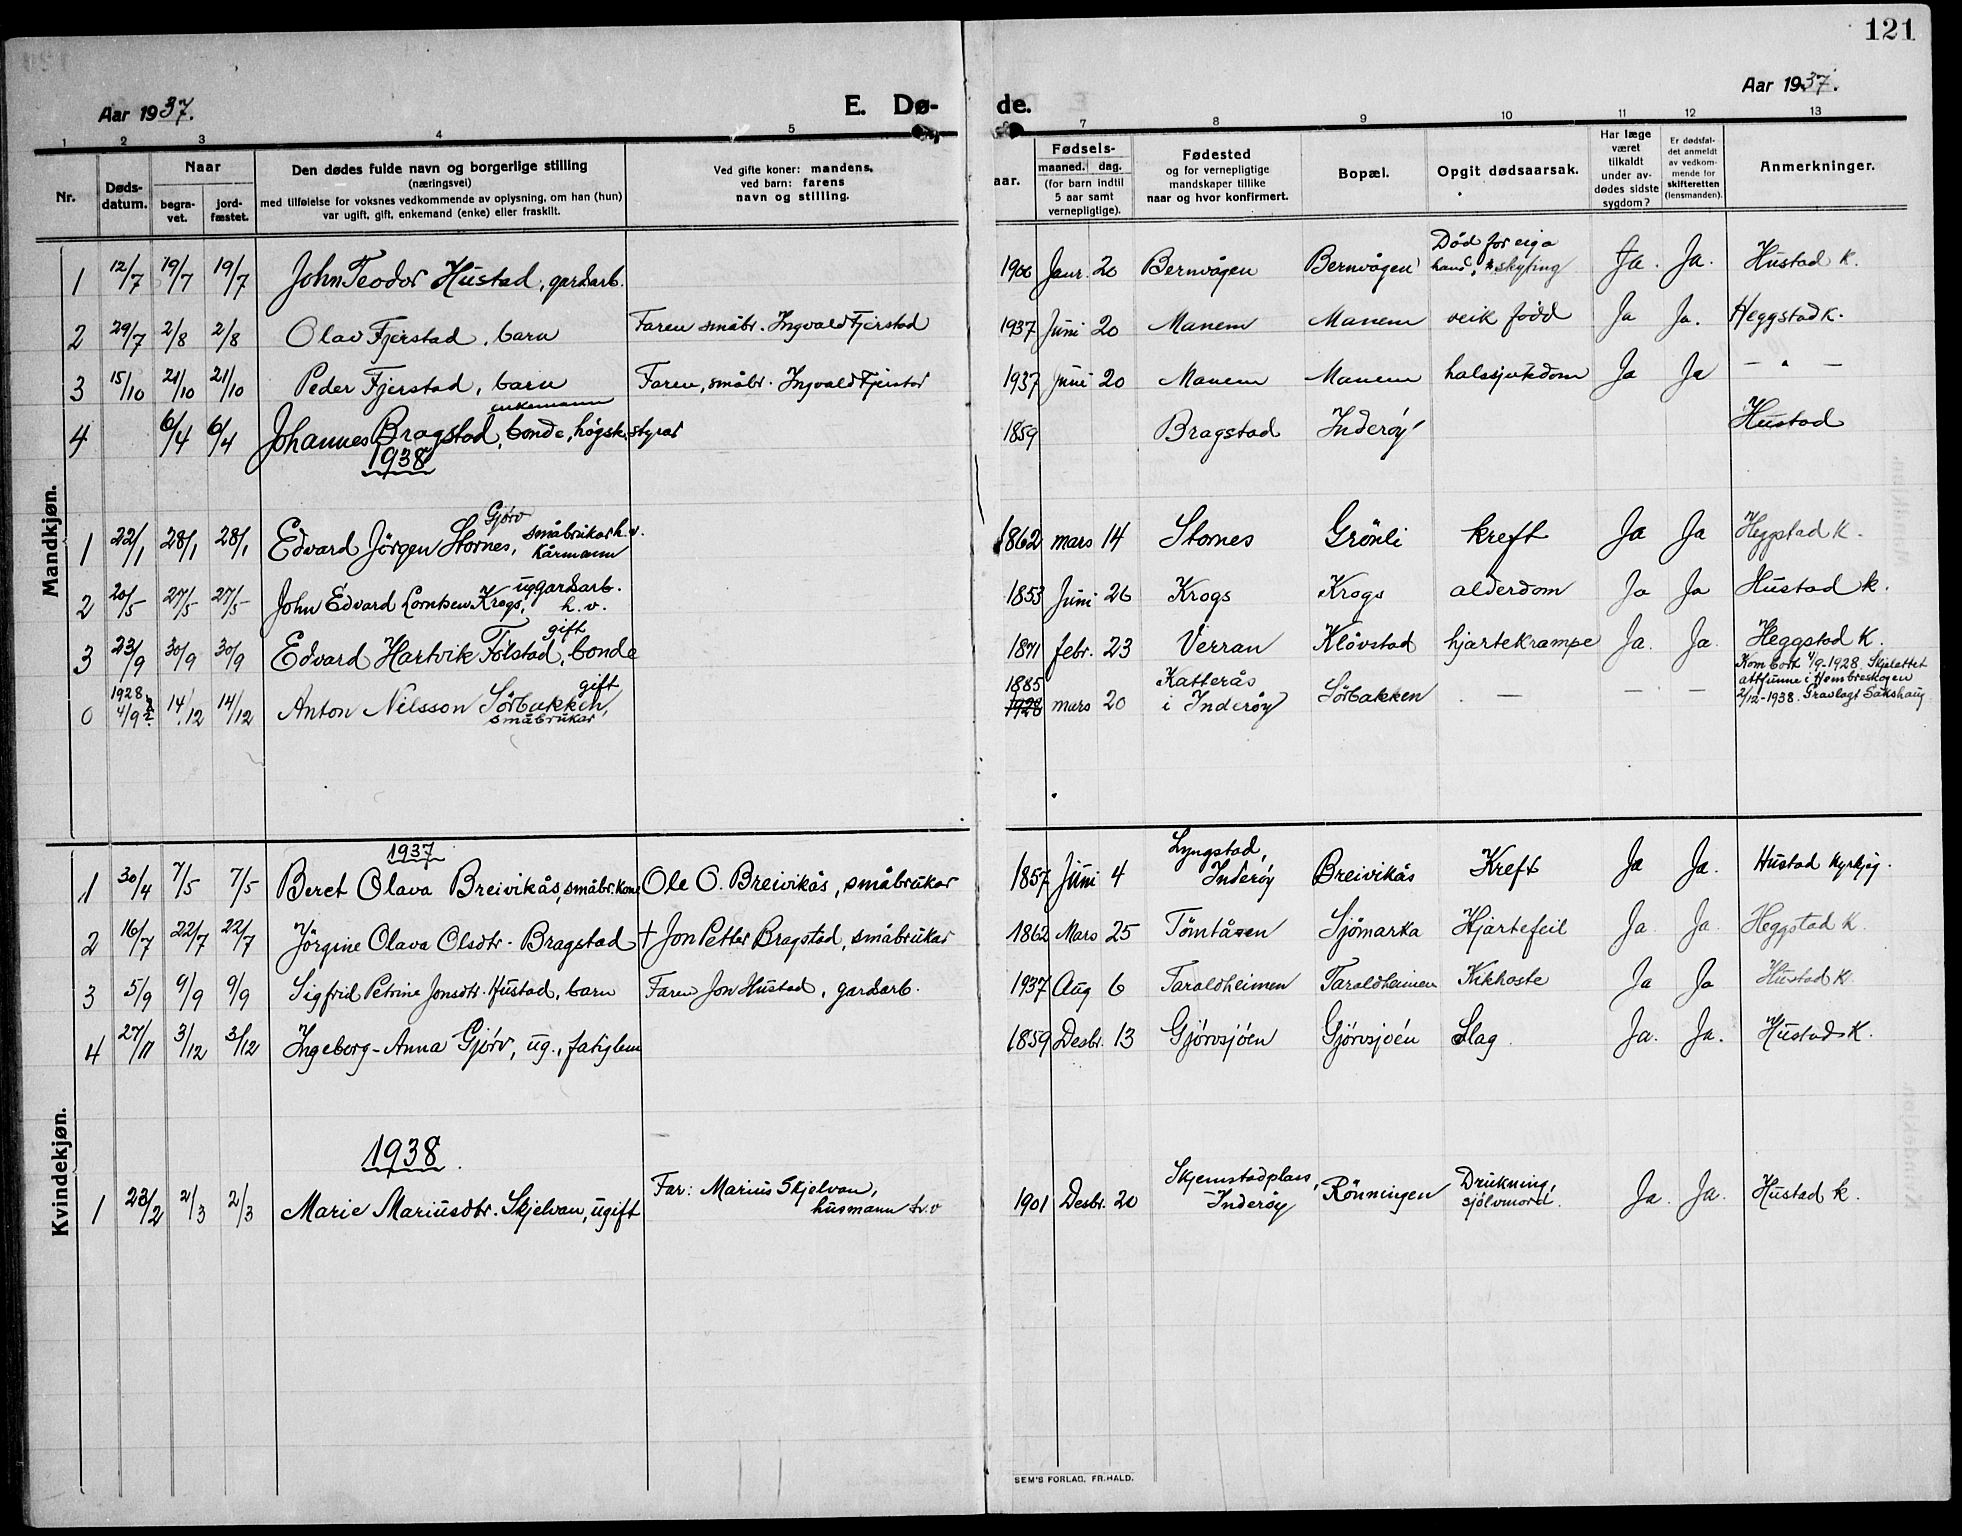 121
Aar 1937.
E. Dø-
de.
Aar 1937.
1 2 3 4 5 7 8 9 10 11 12 13
Nr.
Døds-
datum.
Naar
begra-
vet.
jord-
fæstet.
Den dødes fulde navn og borgerlige stilling
(næringsvei)
med tilføielse for voksnes vedkommende av oplysning, om han (hun)
var ugift, gift, enkemand (enke) eller fraskilt.
Ved gifte koner: mandens,
ved barn: farens
navn og stilling.
aar.
Fødsels-
maaned. dag.
(for barn indtil
5 aar samt
vernepligtige).
Fødested
og for vernepligtige
mandskaper tillike
naar og hvor konfirmert.
Bopæl.
Opgit dødsaarsak.
Har læge
været
tilkaldt
under av-
dødes sidste
sygdom?
Er dødsfal-
det anmeldt
av vedkom-
mende for
skifteretten
(lensmanden).
Anmerkninger.
Mandkjøn.
1 12/7 19/7 19/7 John Teodor Hustad, gardsarb. 1900 Janr. 20 Bernvågen Bernvågen Død for eiga hand, skyting Ja. Ja. Hustad k.
2 29/7 2/8 2/8 Olav Fjerstad, barn Faren småbr. Ingvald Fjerstad 1937 Juni 20 Manem Manem veik fødd Ja Ja. Heggstad k.
3 15/10 21/10 21/10 Peder Fjerstad, barn Faren, småbr. Ingvald Fjerstad 1937 Juni 20 Manem Manem halssjukdom Ja Ja — " —
enkemann
4 6/4 6/4 Johannes Bragstad, bonde, högsk.styrar 1859 Bragstad Inderøy Hustad
1938
1 22/1 28/1 28/1 Edvard Jörgen Stornes, Gjørv småbrukar h.v. kårmann 1862 mars 14 Stornes Grönli kreft Ja Ja Heggstad k.
2 20/5 27/5 27/5 John Edvard Lorntsen Krogs, ug gardsarb. h.v. 1853 Juni 26 Krogs Krogs alderdom Ja Ja Hustad k.
3 23/9 30/9 30/9 Edvard Hartvik Folstad, gift bonde 1871 febr. 23 Verran Klövstad hjartekrampe Ja. Ja. Heggstad K.
0 1928 4/9 ? 14/12 14/12 Anton Nilsson Sörbakken, gift småbrukar 1885 1928 mars 20 Katterås i Inderøy Sörbakken — — — Kom bort 4/9-1928. Skjelettet
attfunne i Hombreskogen
2/12-1938. Gravlagt Sakshaug
Kvindekjøn.
1937
1 30/4 7/5 7/5 Beret Olava Breivikås, småbr.kone Ole O. Breivikås, småbrukar 1857 Juni 4 Lyngstad, Inderøy Breivikås Kreft Ja Ja. Hustad kyrkjeg.
2 16/7 22/7 22/7 Jörgine Olava Olsdtr. Bragstad † Jon Petter Bragstad, småbrukar 1862 Mars 25 Tömtåsen Sjömarka Hjartefeil Ja Ja. Heggstad k.
3 5/9 9/9 9/9 Sigfrid Petrine Jonsdtr. Hustad, barn Faren Jon Hustad, gardsarb. 1937 Aug 6 Taraldheimen Taraldheimen Kikhoste Ja Ja Hustad k.
4 27/11 3/12 3/12 Ingeborg-Anna Gjørv, ug., fatiglem 1859 Desbr. 13 Gjørvsjöen Gjørvsjöen Slag Ja. Ja. Hustad K.
1938
1 23/2 2/3 2/3 Marie Mariusdtr. Skjelvan, ugift Far: Marius Skjelvan, husmann h.v 1901 Desbr. 20 Skjemstadplass, Inderøy Rönningen Drukning, sjölvmord. Ja. Ja. Hustad k.
SEM'S FORLAG. FR. HALD.